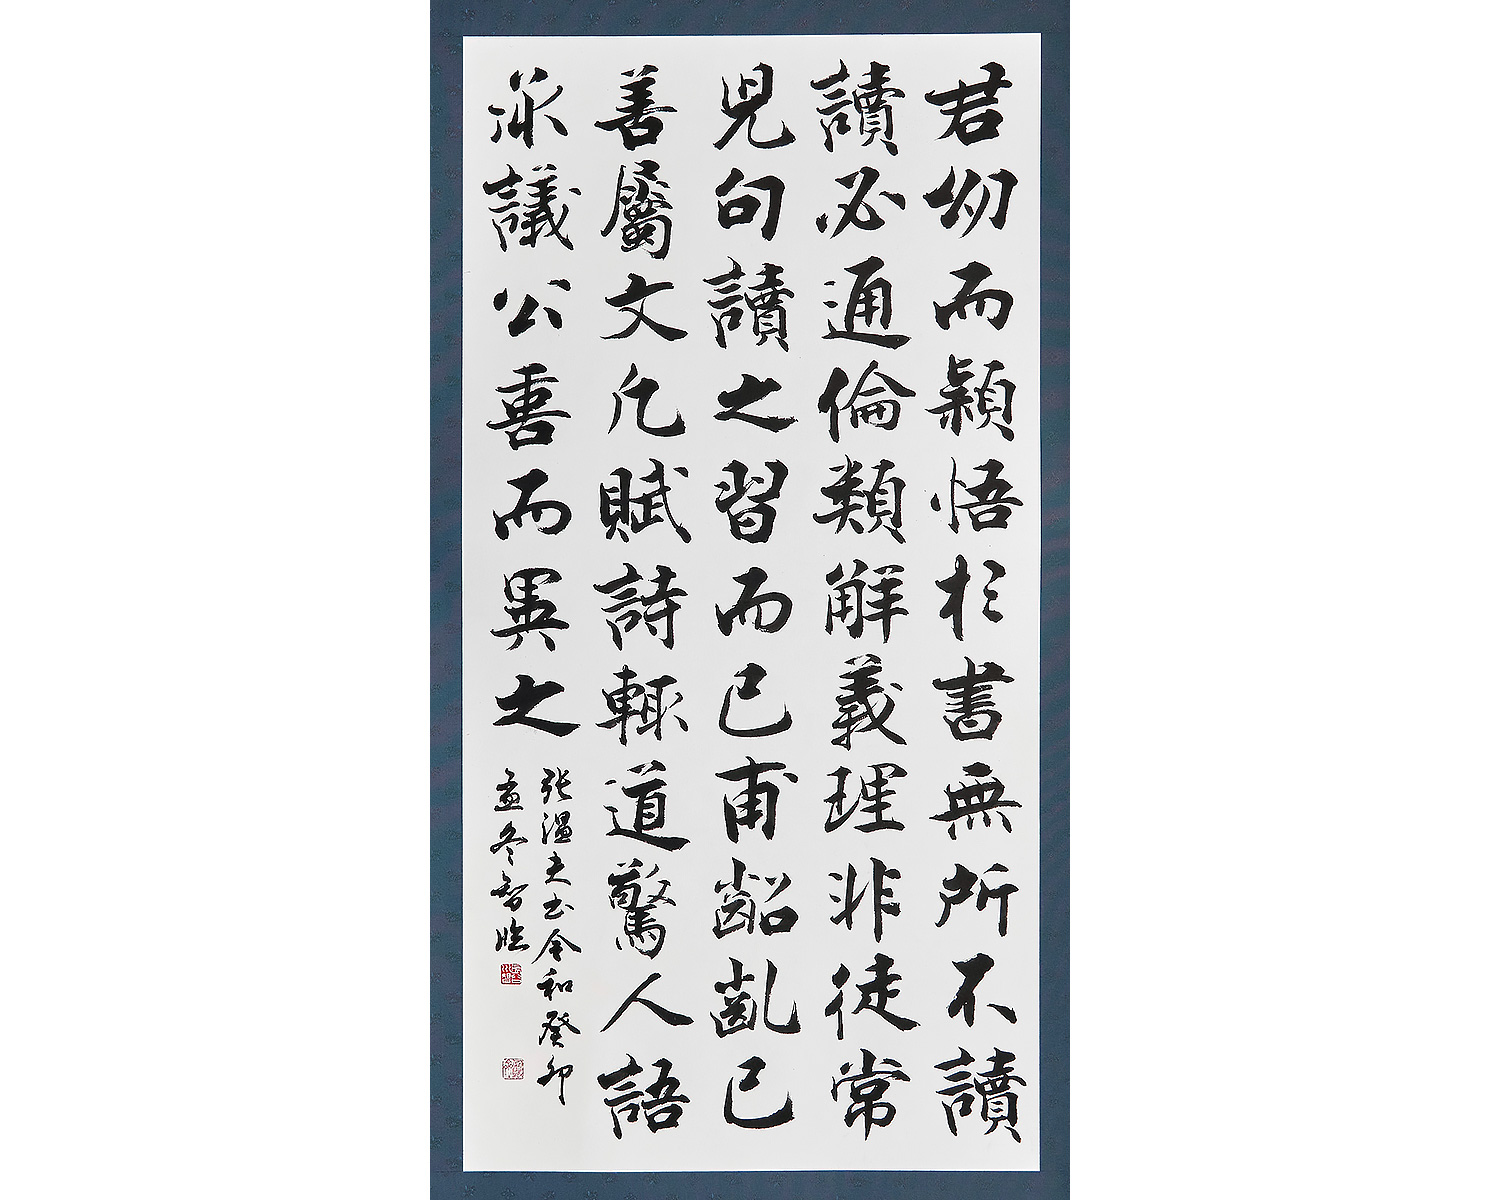 君幼而穎悟於書無所不讀
讀必通倫類解義理非徒常
兒句讀之習而已甫齠齓已
善屬文凡賦詩輒道驚人語
承議公喜而異之
張温夫書令和癸卯
孟冬智臨